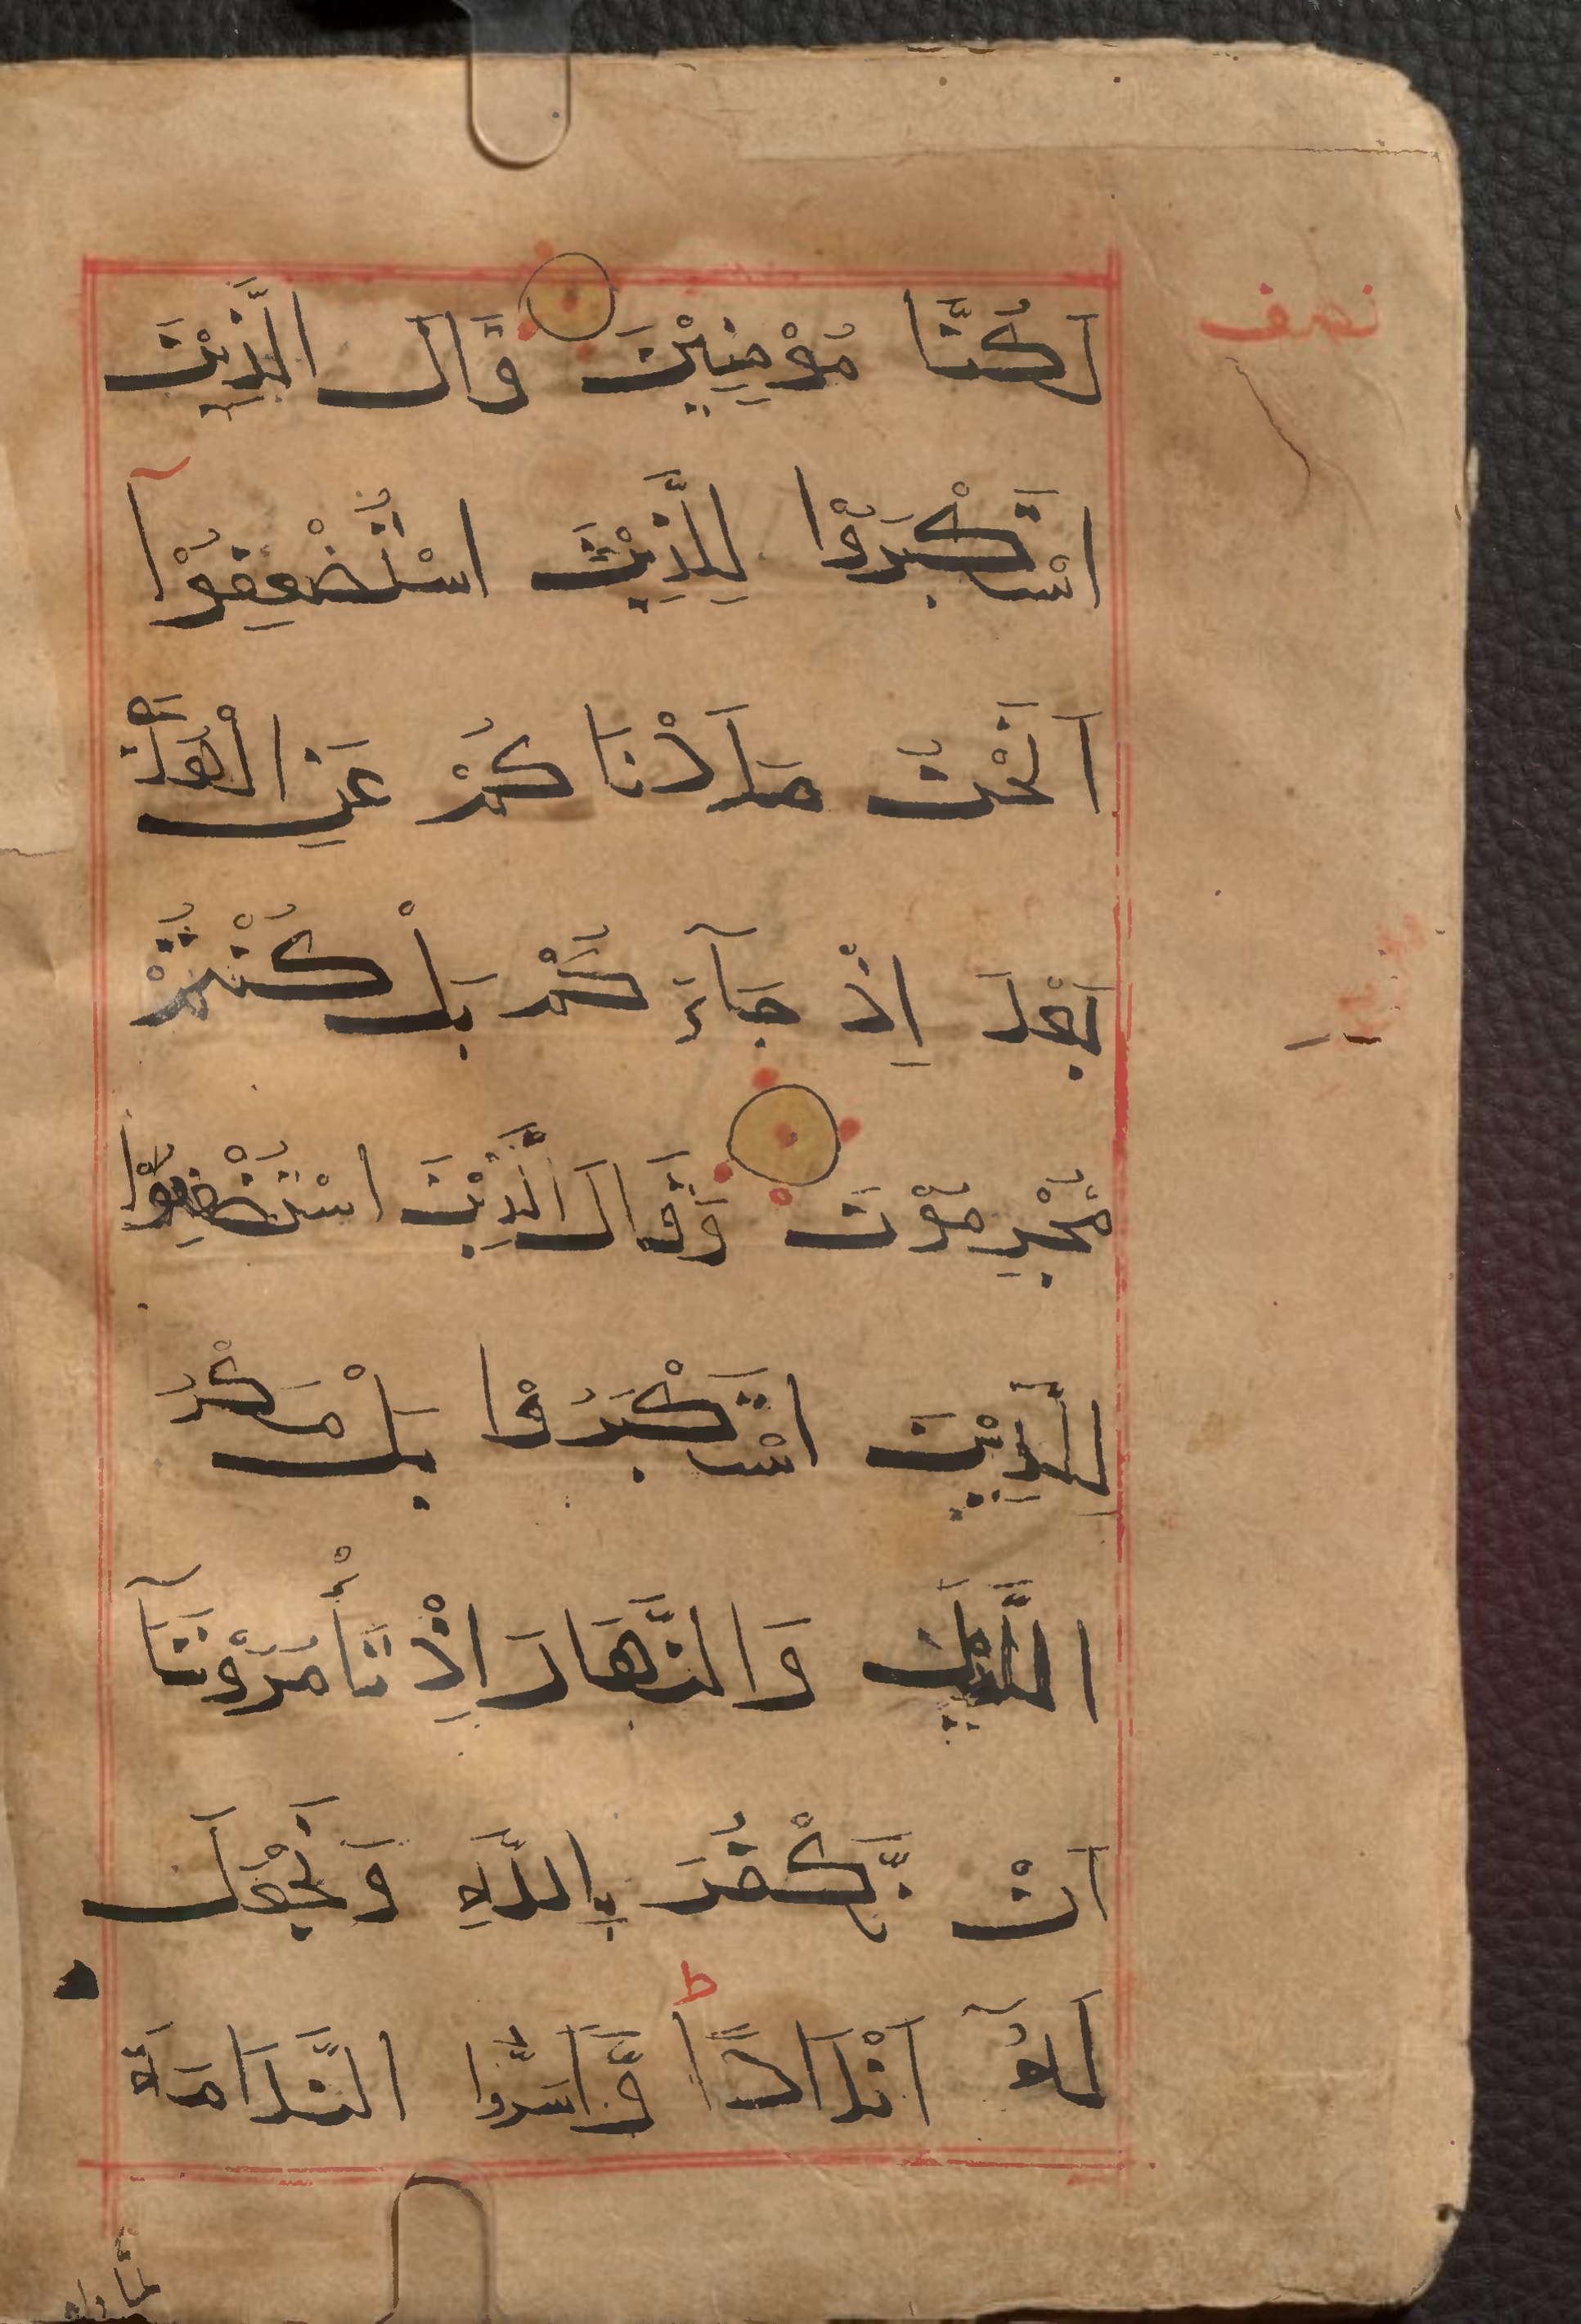 نصف
لَكُنَّا مُؤْمِنِيْنَ قَالَ الَّذِيْنَ
اسْتَكْبَرُوْا لِلَّذِيْنَ اسْتُضْعِفُوْآ
اَنَحْنُ صَدَدْنَاكُمْ عَنِ الْهُدٰى
بَعْدَ اِذْ جَآءَكُمْ بَلْ كُنْتُمْ
مُّجْرِمِوْنَ وَقَالَ الَّذِيْنَ اسْتُضْعِفُوْا
لِلَّذِيْنَ اسْتَكْبَرُوْا بَلْ مَكْرُ
الَّيْلِ وَالنَّهَارِ اِذْ تَأْمُرُوْنَنَآ
اَنْ نَّكْفُرَ بِاللّٰهِ وَنَجْعَلَ
لَهُٓ اَنْدَادًا ط وَّاَسَرُّوا النَّدَامَةَ
لَمَّا رَاَوُ